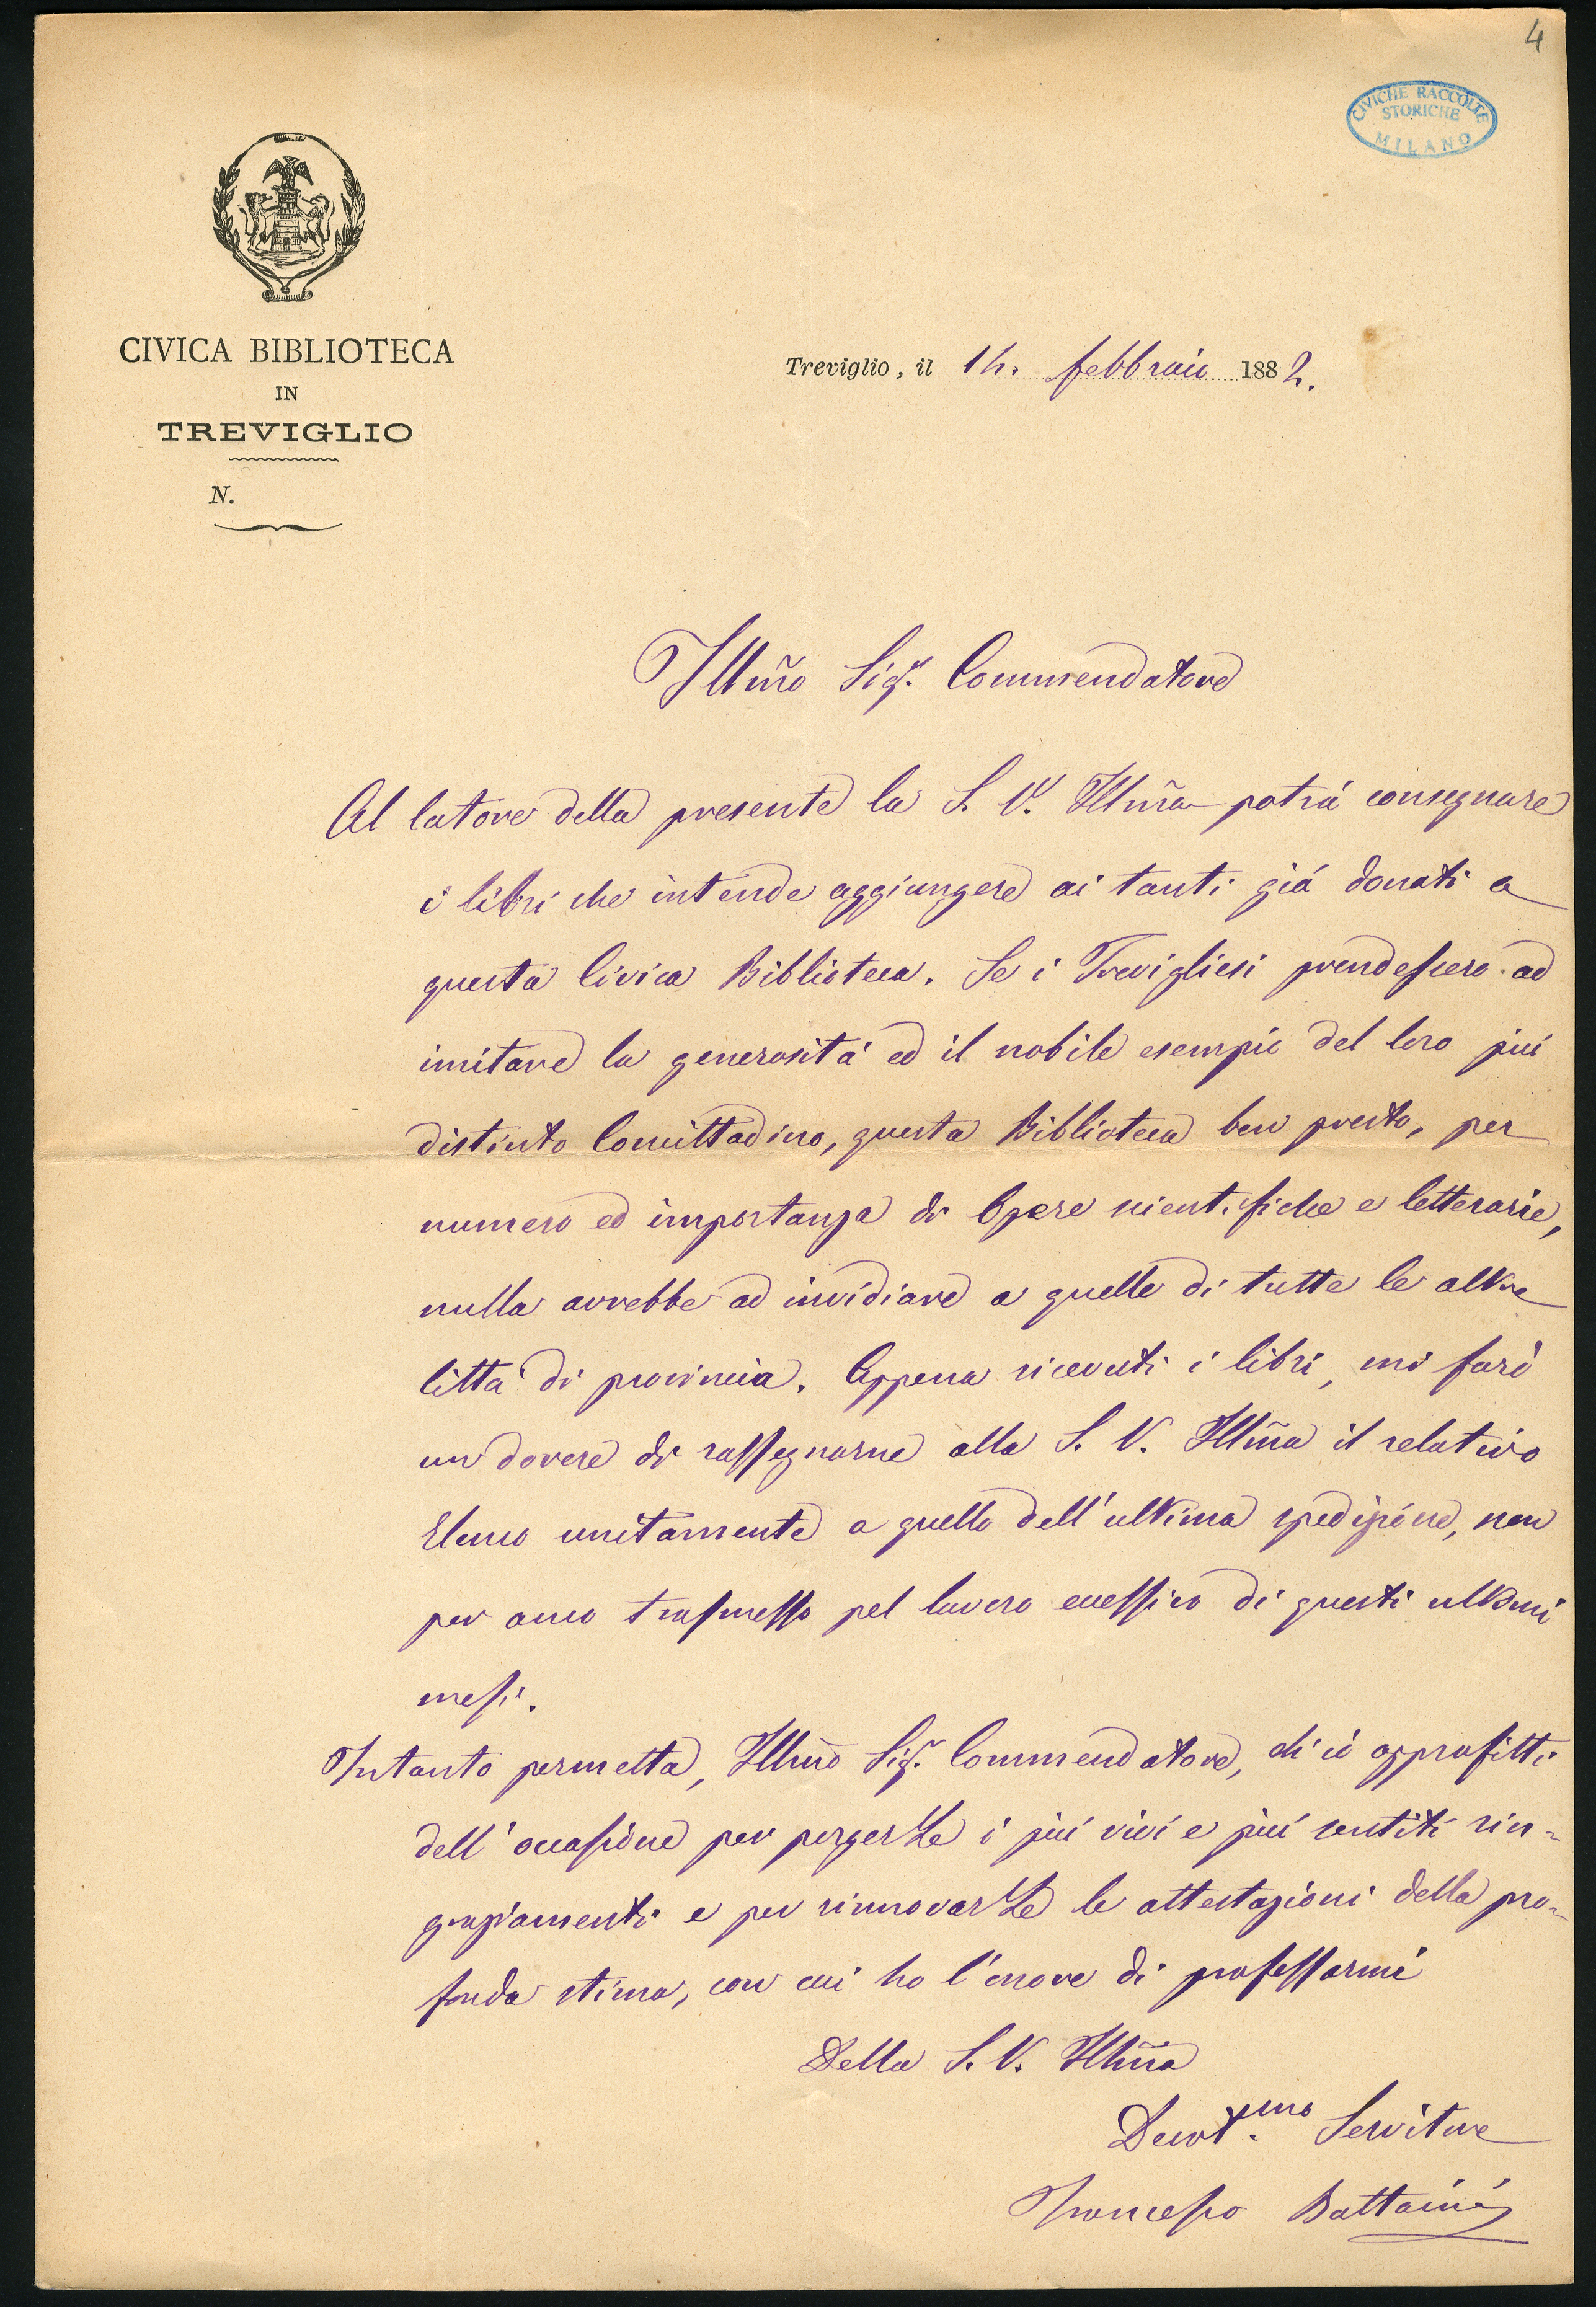 4
CIVICHE RACCOLTE
STORICHE
MILANO
CIVICA BIBLIOTECA
IN
TREVIGLIO
N.
Treviglio, il 14. febbraio 1882.
Illm̃o Sigr. Commendatore
Al latore della presente la S. V. Illm̃a potrá consegnare
i libri che intende aggiungere ai tanti giá donati a
questa Civica Biblioteca. Se i Trevigliesi prendessero ad
imitare la generositá ed il nobile esempio del loro piú
distinto Concittadino, questa Biblioteca ben presto, per
numero ed importanza di Opere scientifiche e letterarie,
nulla avrebbe ad invidiare a quelle di tutte le altre
Cittá di provincia. Appena ricevuti i libri, mi faró
un dovere di rassegnarne alla S. V. Illm̃a il relativo
Elenco unitamente a quello dell'ultima spedizione, non
per anco trasmesso pel lavoro eccessivo di questi ultimi
mesi.
Intanto permetta, Illm̃o Sigr. Commendatore, ch'io approfitti
dell'occasione per porgerLe i piú vivi e piú sentiti rin-
graziamenti e per rinnovarLe le attestazioni della pro-
fonda stima, con cui ho l'onore di professarmi
Della S. V. Illm̃a
Devot.mo Servitore
Francesco Battaini